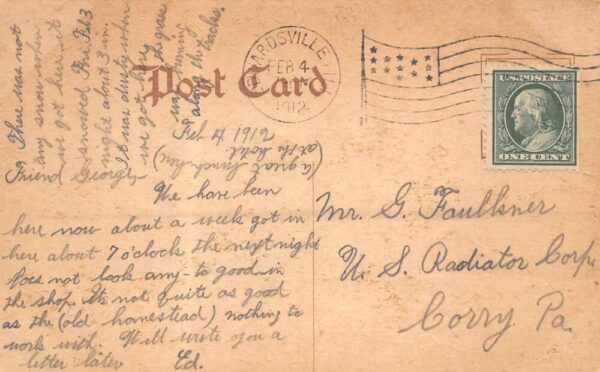 There was not
any snow when
we got here. it
snowed Fri. Feb 3
night about 3 in.
It was dusty when
we got here
the grass
was burning
along the tracks.
Post Card
FEB 4
1912
U.S. POSTAGE
ONE CENT
Feb 4 1912
(a great bunch
at the hotel
Friend George,
We have been
here now about a week got in
here about 7 o'clock the next night
Does not look any-to good in
the shop. Its not quite as good
as the (old homestead) nothing to
work with. Will write you a
letter later Ed.
Mr. G. Faulkner
U. S. Radiator Corp.
Corry Pa.